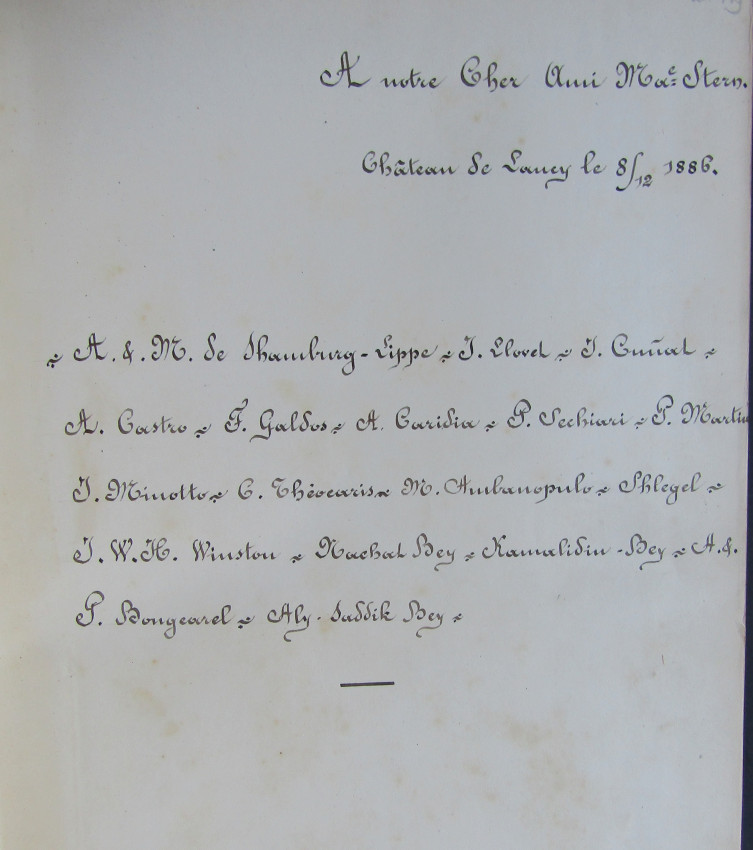 A notre Cher Ami Mce Stern.
Château de Lancy le 8/12 1886.
A. & M. de Shamburg-Lippe J. Llovet J. Cuñat
A. Castro F. Galdos A. Caridia P. Sechiari P. Martin
J. Minotto C. Théocaris M. Ambanopulo Shlegel
J. W. H. Winston Nachat Bey Kamalidin-Bey A. &
P. Bongearel Aly-Saddik Bey